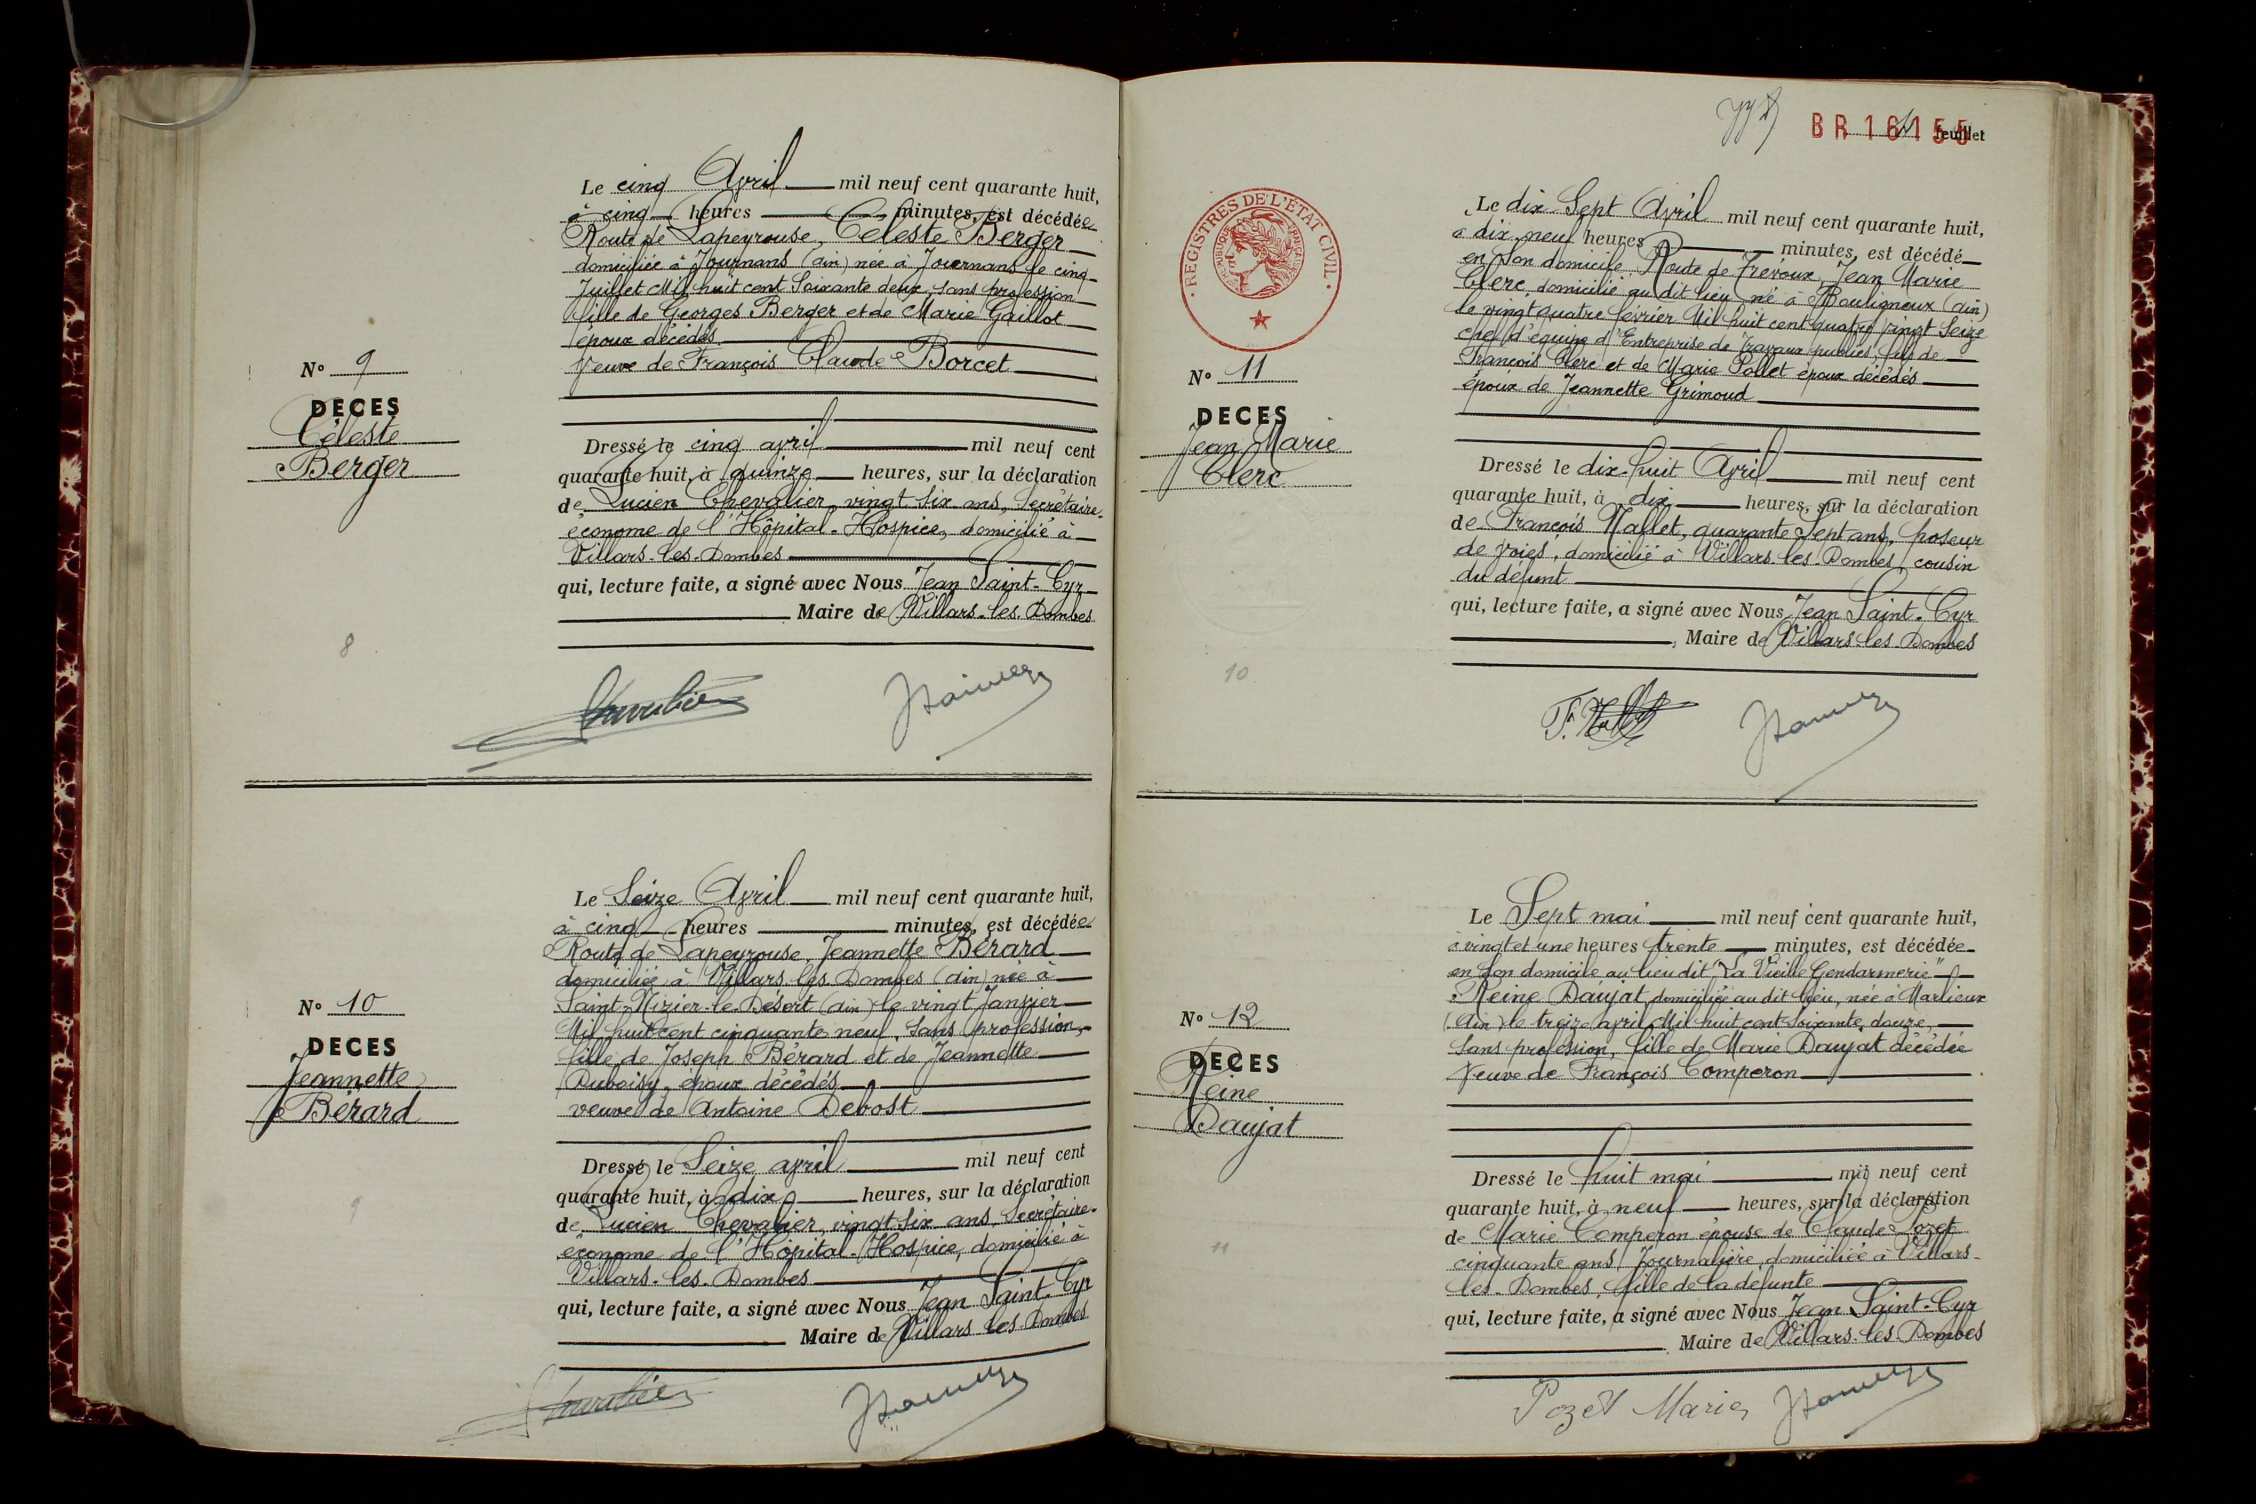 Le cinq Avril mil neuf cent quarante huit,
à cinq heures minutes, est décédée
Route de Lapeyrouse, Céleste Berger
domiciliée à Journans (ain) née à Journans le cinq
Juillet Mil huit cent Soixante deux, sans profession
fille de Georges Berger et de Marie Gaillot
époux décédés.
Veuve de François Claude Borcet
N° 9
DECES
Céleste
Berger
Dressé le cinq avril mil neuf cent
quarante huit, à quinze heures, sur la déclaration
de Lucien Chevalier, vingt six ans, Secrétaire-
économe de l'Hôpital-Hospice, domicilié à
Villars-les-Dombes
qui, lecture faite, a signé avec Nous Jean Saint-Cyr
Maire de Villars-les-Dombes
8
Le Seize Avril mil neuf cent quarante huit,
à cinq heures minutes, est décédée
Route de Lapeyrouse, Jeannette Bérard
domiciliée à Villars-les-Dombes (ain) née à
Saint-Nizier-le-Désert (ain) le vingt Janvier
Mil huit cent cinquante neuf, sans profession,
fille de Joseph Bérard et de Jeannette
époux décédés
veuve de Antoine Debost
N° 10
DECES
Jeannette
Bérard
Dressé le Seize avril mil neuf cent
quarante huit, à dix heures, sur la déclaration
de Lucien Chevalier, vingt six ans, Secrétaire-
économe de l'Hôpital-Hospice, domicilié à
Villars-les-Dombes
qui, lecture faite, a signé avec Nous Jean Saint-Cyr
Maire de Villars-les-Dombes
9
BR 16155
feuillet
REGISTRES DE L'ÉTAT CIVIL
RÉPUBLIQUE FRANÇAISE
Le dix Sept Avril mil neuf cent quarante huit,
à dix neuf heures minutes, est décédé
en son domicile Route de Trévoux, Jean Marie
Clerc, domicilié au dit lieu, né à Bouligneux (ain)
le vingt quatre février Mil huit cent quatre vingt Seize
chef d'équipe d'Entreprise de Travaux publics, fils de
François Clerc et de Marie Pollet époux décédés
époux de Jeannette Grimoud
N° 11
DECES
Jean Marie
Clerc
Dressé le dix-huit Avril mil neuf cent
quarante huit, à dix heures, sur la déclaration
de François Nallet, quarante Sept ans, poseur
de voies, domicilié à Villars-les-Dombes, cousin
du défunt
qui, lecture faite, a signé avec Nous Jean Saint-Cyr
, Maire de Villars-les-Dombes
10
Le Sept mai mil neuf cent quarante huit,
à vingt et une heures trente minutes, est décédée
en son domicile au lieu dit "La Vieille Gendarmerie"
Reine Daujat, domiciliée au dit lieu, née à Marlieux
(Ain) le treize avril Mil huit cent Soixante douze,
sans profession, fille de Marie Daujat décédée
Veuve de François Comperon
N° 12
DECES
Reine
Daujat
Dressé le huit mai mil neuf cent
quarante huit, à neuf heures, sur la déclaration
de Marie Comperon épouse de Claude Pozet
cinquante ans, Journalière, domiciliée à Villars-
les-Dombes, fille de la défunte
qui, lecture faite, a signé avec Nous Jean Saint-Cyr
Maire de Villars-les-Dombes
11
Pozet Marie